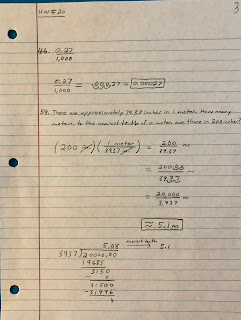 3
HW #20
46. 0.27
1,000
0.27 = .00027 = 0.00027
1,000
59. There are approximately 39.37 inches in 1 meter. How many
meters, to the nearest tenth of a meter are there in 200 inches?
(200 in)(1 meter = 200 m
39.37 39.37
= 200.00 m
39.37
= 20,000 m
3,937
≈ 5.1 m
5.08 nearest tenth 5.1
3937)20000.00
19685
3150
- 0
31500
-31496
4